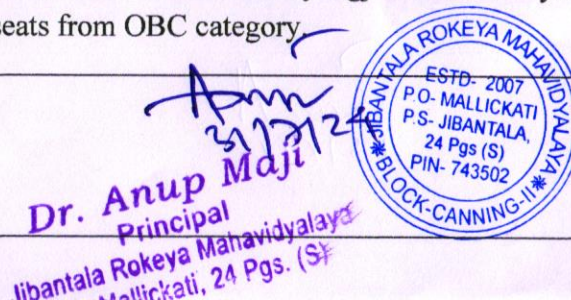 seats from OBC category.
31/7/24
Dr. Anup Maji
Principal
Jibantala Rokeya Mahavidyalaya
Mallickati, 24 Pgs. (S)
JIBANTALA ROKEYA MAHAVIDYALAYA
ESTD- 2007
P.O- MALLICKATI
P.S- JIBANTALA,
24 Pgs (S)
PIN- 743502
*BLOCK-CANNING-II*